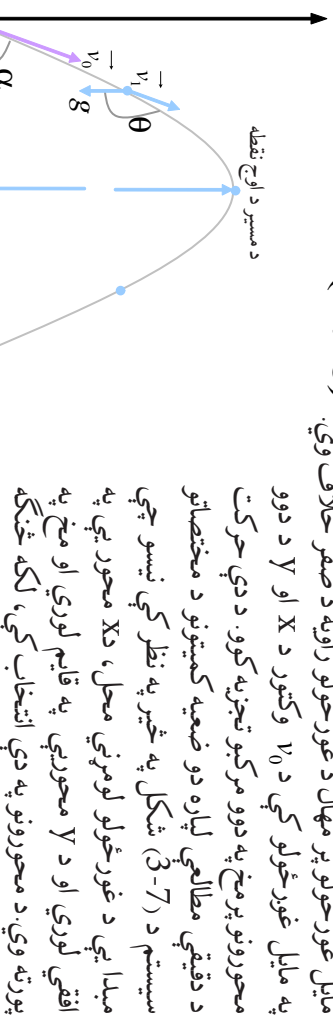 مایل غورځولو پر مهال د غورځولو زاویه د صفر خلاف وي.
په مایل غورځولو کې د v₀ وکتور د x او y د دوو
محورونو پرمخ په دوو مرکبو تجزیه کوو. د دې حرکت
د دقیقې مطالعې لپاره دو ضعیه کمیتونو د مختصاتو
سیستم د (3-7) شکل په څیر په نظر کې نیسو چې
مبدا یې د غورځولو لومړنی محل، دx محور یې په
افقي لوري او د y محوریې په قایم لوري او مخ په
پورته وي. د محورونو په دې انتخاب کې، لکه څنګه
د مسیر د اوج نقطه
v₁
θ
g
v₀
α